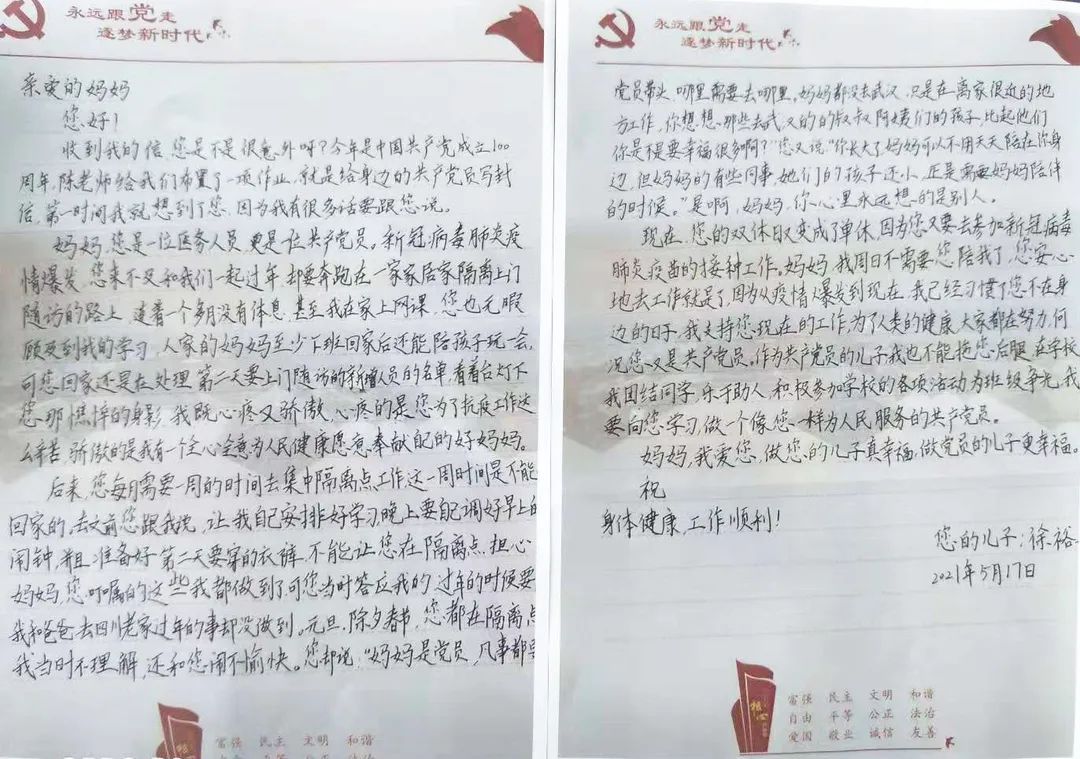 永远跟党走
逐梦新时代
亲爱的妈妈
您好！
收到我的信,您是不是很意外呀?今年是中国共产党成立100
周年,陈老师给我们布置了一项作业,就是给身边的共产党员写封
信,第一时间我就想到了您,因为我有很多话要跟您说。
妈妈,您是一位医务人员,更是位共产党员。新冠病毒肺炎疫
情爆发,您来不及和我们一起过年,却要奔跑在一家家居家隔离上门
随访的路上,连着一个多月没有休息,甚至我在家上网课,您也无暇
顾及到我的学习,人家的妈妈至少下班回家后还能陪孩子玩一会,
可您回家还是在处理第二天要上门随访的新增人员的名单,看着台灯下
您那憔悴的身影,我既心疼又骄傲,心疼的是您为了抗疫工作这
么辛苦,骄傲的是我有一个全心全意为人民健康愿意奉献自己的好妈妈。
后来,您每月需要一周的时间去集中隔离点工作,这一周时间是不能
回家的,去之前您跟我说,让我自己安排好学习,晚上要自己调好早上的
闹钟,并且准备好第二天要穿的衣裤,不能让您在隔离点担心,
妈妈,您叮嘱的这些我都做到了,可您当时答应我的,过年的时候要
我和爸爸去四川老家过年的事却没做到。元旦、除夕、春节,您都在隔离点
我当时不理解,还和您闹不愉快。您却说:“妈妈是党员,凡事都要
富强 民主 文明 和谐
永远跟党走
逐梦新时代
党员带头,哪里需要去哪里,妈妈都没去武汉,只是在离家很近的地
方工作,你想想,那些去武汉的的叔叔阿姨们的孩子,比起他们
你是不是要幸福很多啊?”您又说:“你长大了,妈妈可以不用天天陪在你身
边,但妈妈的有些同事,她们的孩子还小,正是需要妈妈陪伴
的时候。”是啊,妈妈,你心里永远想的是别人。
现在,您的双休日又变成了单休,因为您又要去参加新冠病毒
肺炎疫苗的接种工作。妈妈,我周日不需要您陪我了,您安心
地去工作就是了,因为从疫情爆发到现在,我已经习惯了您不在身
边的日子,我支持您现在的工作,为了人类的健康,大家都在努力,何
况您又是共产党员。作为共产党员的儿子我也不能拖您后腿,在学校
我团结同学,乐于助人,积极参加学校的各项活动为班级争光,我
要向您学习,做一个像您一样为人民服务的共产党员。
妈妈,我爱您,做您的儿子真幸福,做党员的儿子更幸福。
祝
身体健康,工作顺利!
您的儿子:徐裕
2021年5月17日
核心
富强 民主 文明 和谐
自由 平等 公正 法治
爱国 敬业 诚信 友善